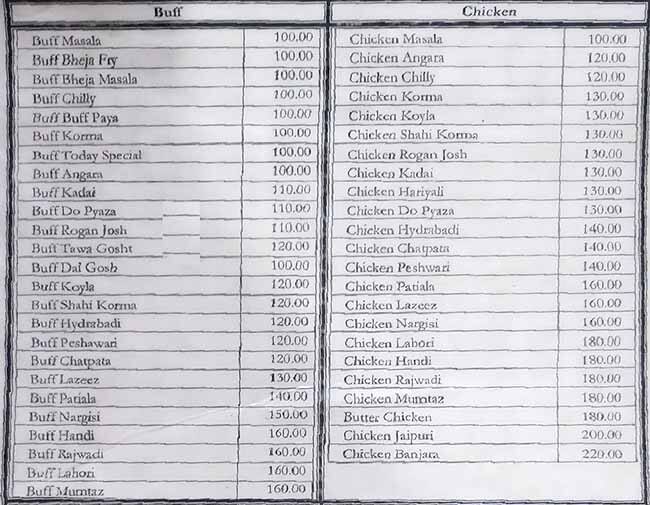 Buff
Buff Masala 100.00
Buff Bheja Fry 100.00
Buff Bheja Masala 100.00
Buff Chilly 100.00
Buff Buff Paya 100.00
Buff Korma 100.00
Buff Today Special 100.00
Buff Angara 100.00
Buff Kadai 110.00
Buff Do Pyaza 110.00
Buff Rogan Josh 110.00
Buff Tawa Gosht 120.00
Buff Dal Gosh 100.00
Buff Koyla 120.00
Buff Shahi Korma 120.00
Buff Hydrabadi 120.00
Buff Peshawari 120.00
Buff Chatpata 120.00
Buff Lazeez 130.00
Buff Patiala 140.00
Buff Nargisi 150.00
Buff Handi 160.00
Buff Rajwadi 160.00
Buff Lahori 160.00
Buff Mumtaz 160.00
Chicken
Chicken Masala 100.00
Chicken Angara 120.00
Chicken Chilly 120.00
Chicken Korma 130.00
Chicken Koyla 130.00
Chicken Shahi Korma 130.00
Chicken Rogan Josh 130.00
Chicken Kadai 130.00
Chicken Hariyali 130.00
Chicken Do Pyaza 130.00
Chicken Hydrabadi 140.00
Chicken Chatpata 140.00
Chicken Peshwari 140.00
Chicken Patiala 160.00
Chicken Lazeez 160.00
Chicken Nargisi 160.00
Chicken Lahori 180.00
Chicken Handi 180.00
Chicken Rajwadi 180.00
Chicken Mumtaz 180.00
Butter Chicken 180.00
Chicken Jaipuri 200.00
Chicken Banjara 220.00